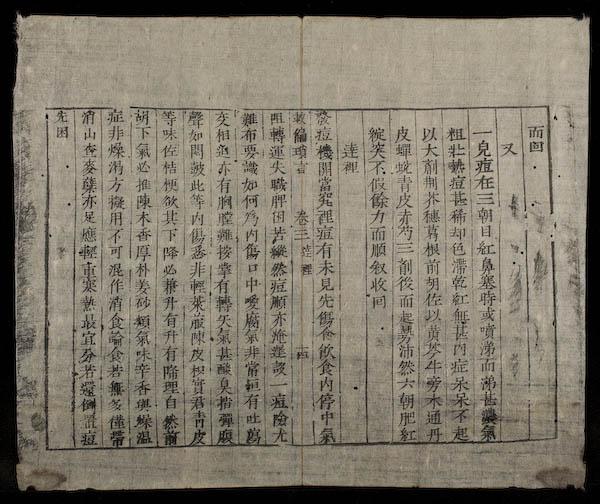 而回
又
一兒痘在三朝目紅鼻塞時或噴涕而涕甚濃氣
粗壯熱痘甚稀却色滯乾紅無甚內症呆呆不起
以大劑荆芥穗葛根前胡佐以黄芩牛蒡木通丹
皮蟬蛻青皮赤芍三劑後而起勢沛然六朝肥紅
綻突不假餘力而順敘收回
達裡
發痘機關當究裡痘有未見先傷食飲食內停中氣
救偏瑣言 卷三 達裡 十四
阻轉運失職脾困苦縱然痘順亦淹遲設一痘險尤
難布要識如何為内傷口中噯腐氣非常恒有吐
交相迸亦有胸膛難按掌有轉矢氣甚酸臭指彈腹
聲如悶皷此等内傷悉非輕萊菔陳皮枳實君青皮
等味佐桔梗欲其下降必藉升有升有降理自然前
胡下氣必推陳木香厚朴姜砂類氣味辛香與燥温
症非燥渴方擬用不可混作消食喻食若無多僅帶
消山查麥蘖亦足應輕重寒熱最宜分若還倒置痘
先困